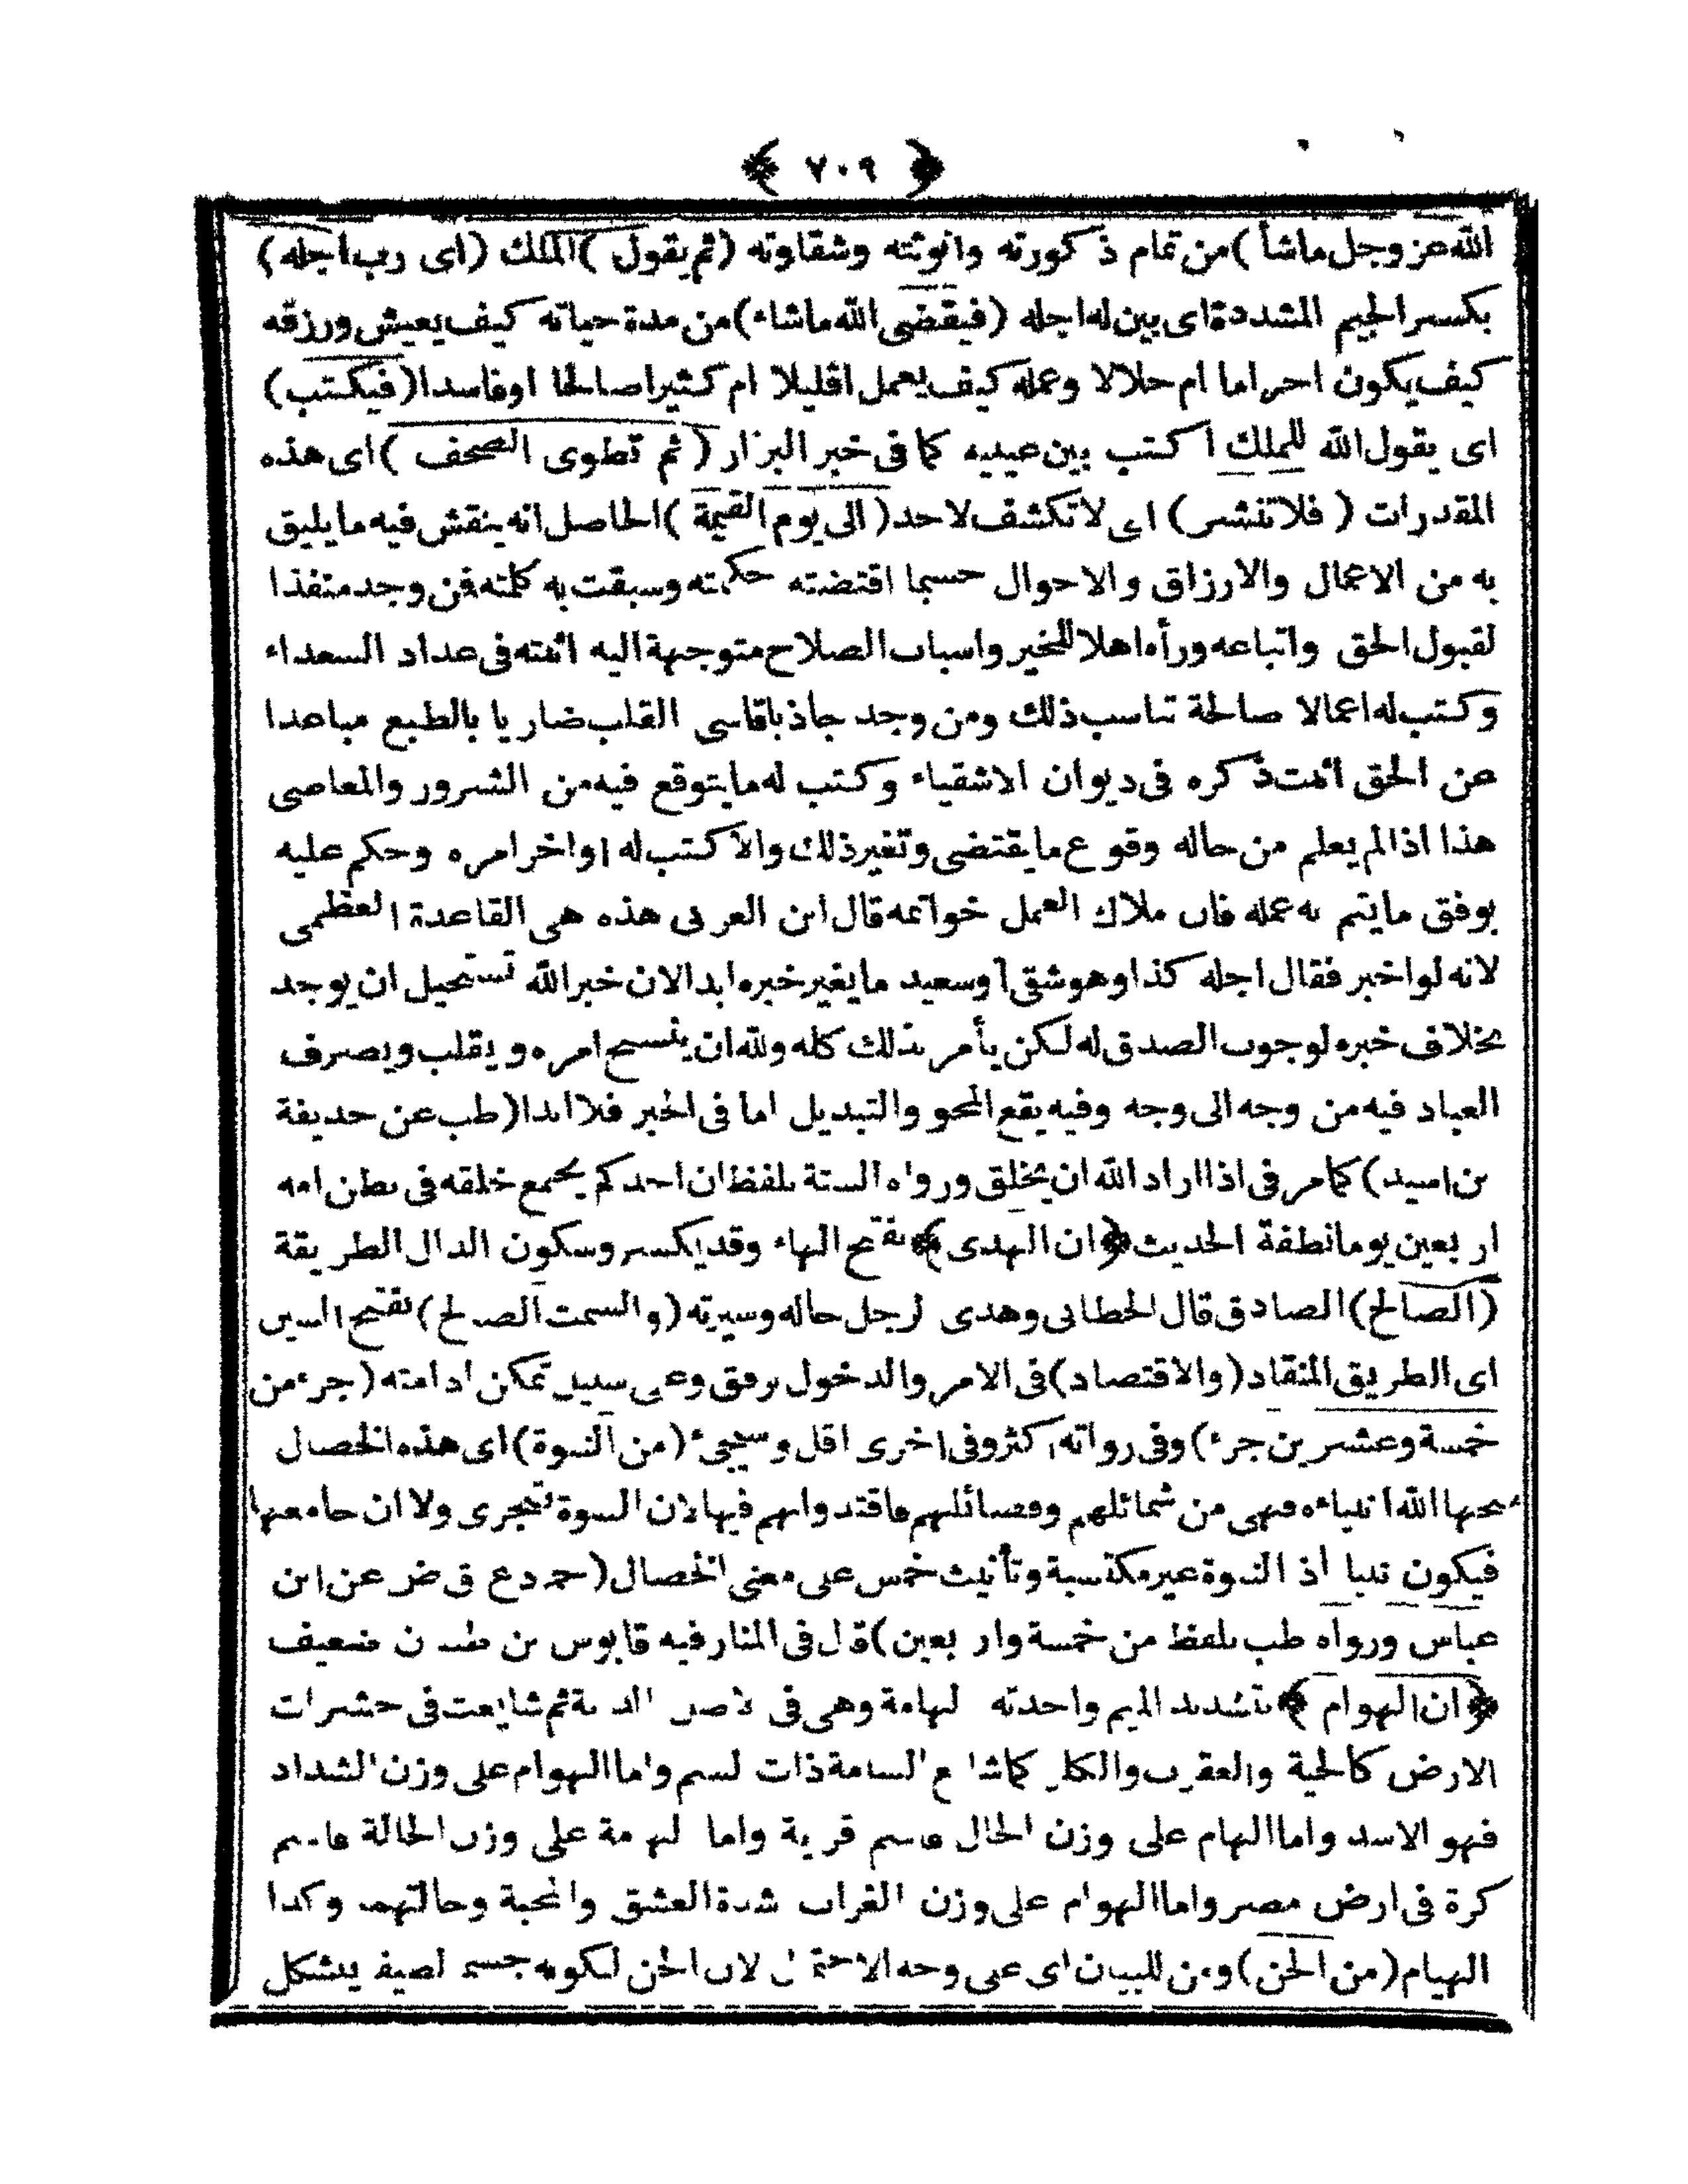 ﴿ ٧٠٩ ﴾
الله عز وجل ماشأ) من تمام ذكورته وانوثته وشقاوته (ثم يقول) الملك (اى رب اجله)
بكسر الجيم المشددة اى بين له اجله (فيقضى الله ماشاء) من مدة حياته كيف يعيش ورزقه
كيف يكون احراما ام حلالا وعمله كيف يعمل اقليلا ام كثيرا صالحا اوفاسدا (فيكتب)
اى يقول الله للملك اكتب بين عينيه كما فى خبر البزار (ثم تطوى الصحف) اى هذه
المقدرات (فلا تنشر) اى لا تكشف لاحد (الى يوم القيمة) الحاصل انه ينقش فيه ما يليق
به من الاعمال والارزاق والاحوال حسبما اقتضته حكمته وسبقت به كلمته فمن وجد متفذا
لقبول الحق واتباعه ورأه اهلا للخير واسباب الصلاح متوجهة اليه اثبته فى عداد السعداء
وكتب له اعمالا صالحة تناسب ذلك ومن وجد جاذبا قاسى القلب ضاريا بالطبع مباعدا
عن الحق اثبت ذكره فى ديوان الاشقياء وكتب له ما يتوقع فيه من الشرور والمعاصى
هذا اذا لم يعلم من حاله وقوع ما يقتضى وتغير ذلك والا كتب له اواخر امره وحكم عليه
بوفق ما يتم به عمله فان ملاك العمل خواتمه قال ابن العربى هذه هى القاعدة العظمى
لانه لو اخبر فقال اجله كذا وهو شقى اوسعيد ما يغير خبره ابدا لان خبر الله تستحيل ان يوجد
بخلاف خبره لوجوب الصدق له لكن يأمر بذلك كله ولله ان ينسخ امره ويقلب ويصرف
العباد فيه من وجه الى وجه وفيه يقع المحو والتبديل اما فى الخبر فلا ابدا (طب عن حديفة
بن اسيد) كما مر فى اذا اراد الله ان يخلق ورواه الستة بلفظ ان احدكم يجمع خلقه فى بطن امه
اربعين يوما نطفة الحديث ﴿ان الهدى﴾ بفتح الهاء وقد يكسر وسكون الدال الطريقة
(الصالح) الصادق قال الخطابى وهدى الرجل حاله وسيرته (والسمت الصالح) بفتح السين
اى الطريق المنقاد (والاقتصاد) فى الامر والدخول برفق وعلى سبيل تمكن ادامته (جزء من
خمسة وعشرين جزء) وفى رواته اكثر وفى اخرى اقل وسيجىء (من النبوة) اى هذه الخصال
منحها الله انبياءه فهى من شمائلهم وفضائلهم فاقتدوا بهم فيها لان النبوة تتجزى ولا ان جامعها
فيكون نبيا اذ النبوة غير مكتسبة وتأنيث خمس على معنى الخصال (حم د ع ق ض عن ابن
عباس ورواه طب بلفظ من خمسة واربعين) قال فى المنار فيه قابوس بن ظبيان ضعيف
﴿ان الهوام﴾ بتشديد الميم واحدته الهامة وهى فى الاصل الدابة ثم شايعت فى حشرات
الارض كالحية والعقرب والكلب كما شاع السامة ذات السم واما الهوام على وزن الشداد
فهو الاسد واما الهام على وزن الخال فاسم قرية واما الهامة على وزن الخالة فاسم
كرة فى ارض مصر واما الهوام على وزن الغراب شدة العشق والمحبة وحالتهما وكذا
الهيام (من الجن) ومن للبيان اى على وجه الاحتمال لان الجن لكونه جسم لصيف يتشكل